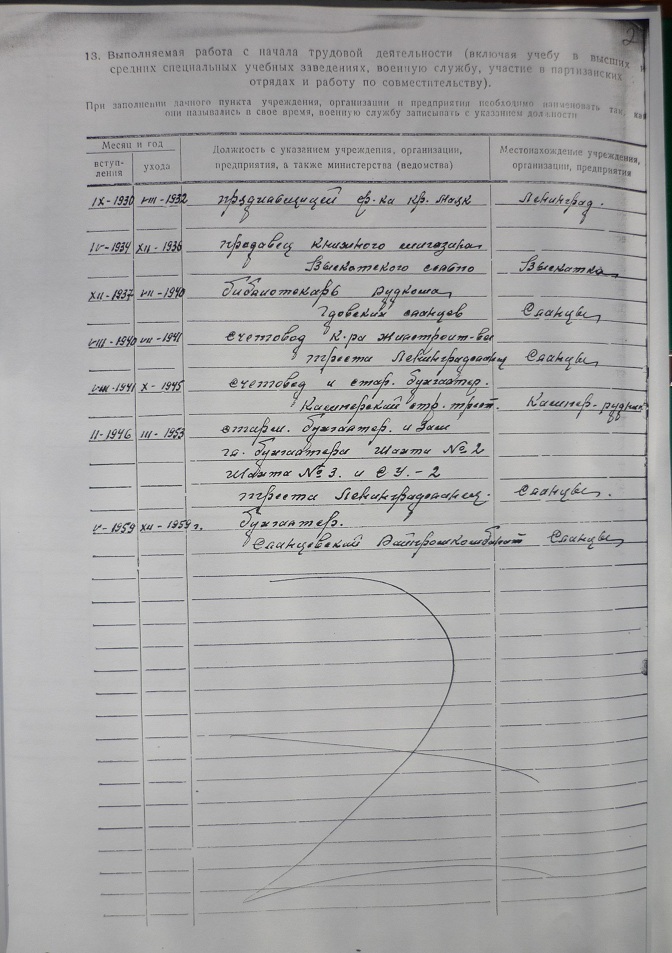 2
13. Выполняемая работа с начала трудовой деятельности (включая учебу в высших и
средних специальных учебных заведениях, военную службу, участие в партизанских
отрядах и работу по совместительству).
При заполнении данного пункта учреждения, организации и предприятия необходимо именовать так, как
они назывались в свое время, военную службу записывать с указанием должности
Месяц и год
вступ-
ления
ухода
Должность с указанием учреждения, организации,
предприятия, а также министерства (ведомства)
Местонахождение учреждения,
организации, предприятия
IX-1930 VIII-1932 ф-ка кр. маяк Ленинград.
IV-1934 XII-1936 продавец книжного магазина
Выскатского сельпо Выскатка
XII-1937 VII-1940 библиотекарь рудкома
Гдовский сланцев Сланцы
VIII-1940 VII-1941 счетовод к-ра жилстроит-ва
треста Ленинградсланец Сланцы
VIII-1941 X-1945 счетовод и стар. бухгалтер.
Кашперский стр. трест. Кашпер-рудник
II-1946 III-1953 старш. бухгалтер. и Зам
гл. бухгалтера Шахта № 2
Шахта № 3. и С.У.-2
треста Ленинградсланец. Сланцы.
V-1959 XII-1959 г. бухгалтер.
Сланцевский Райпромкомбинат Сланцы